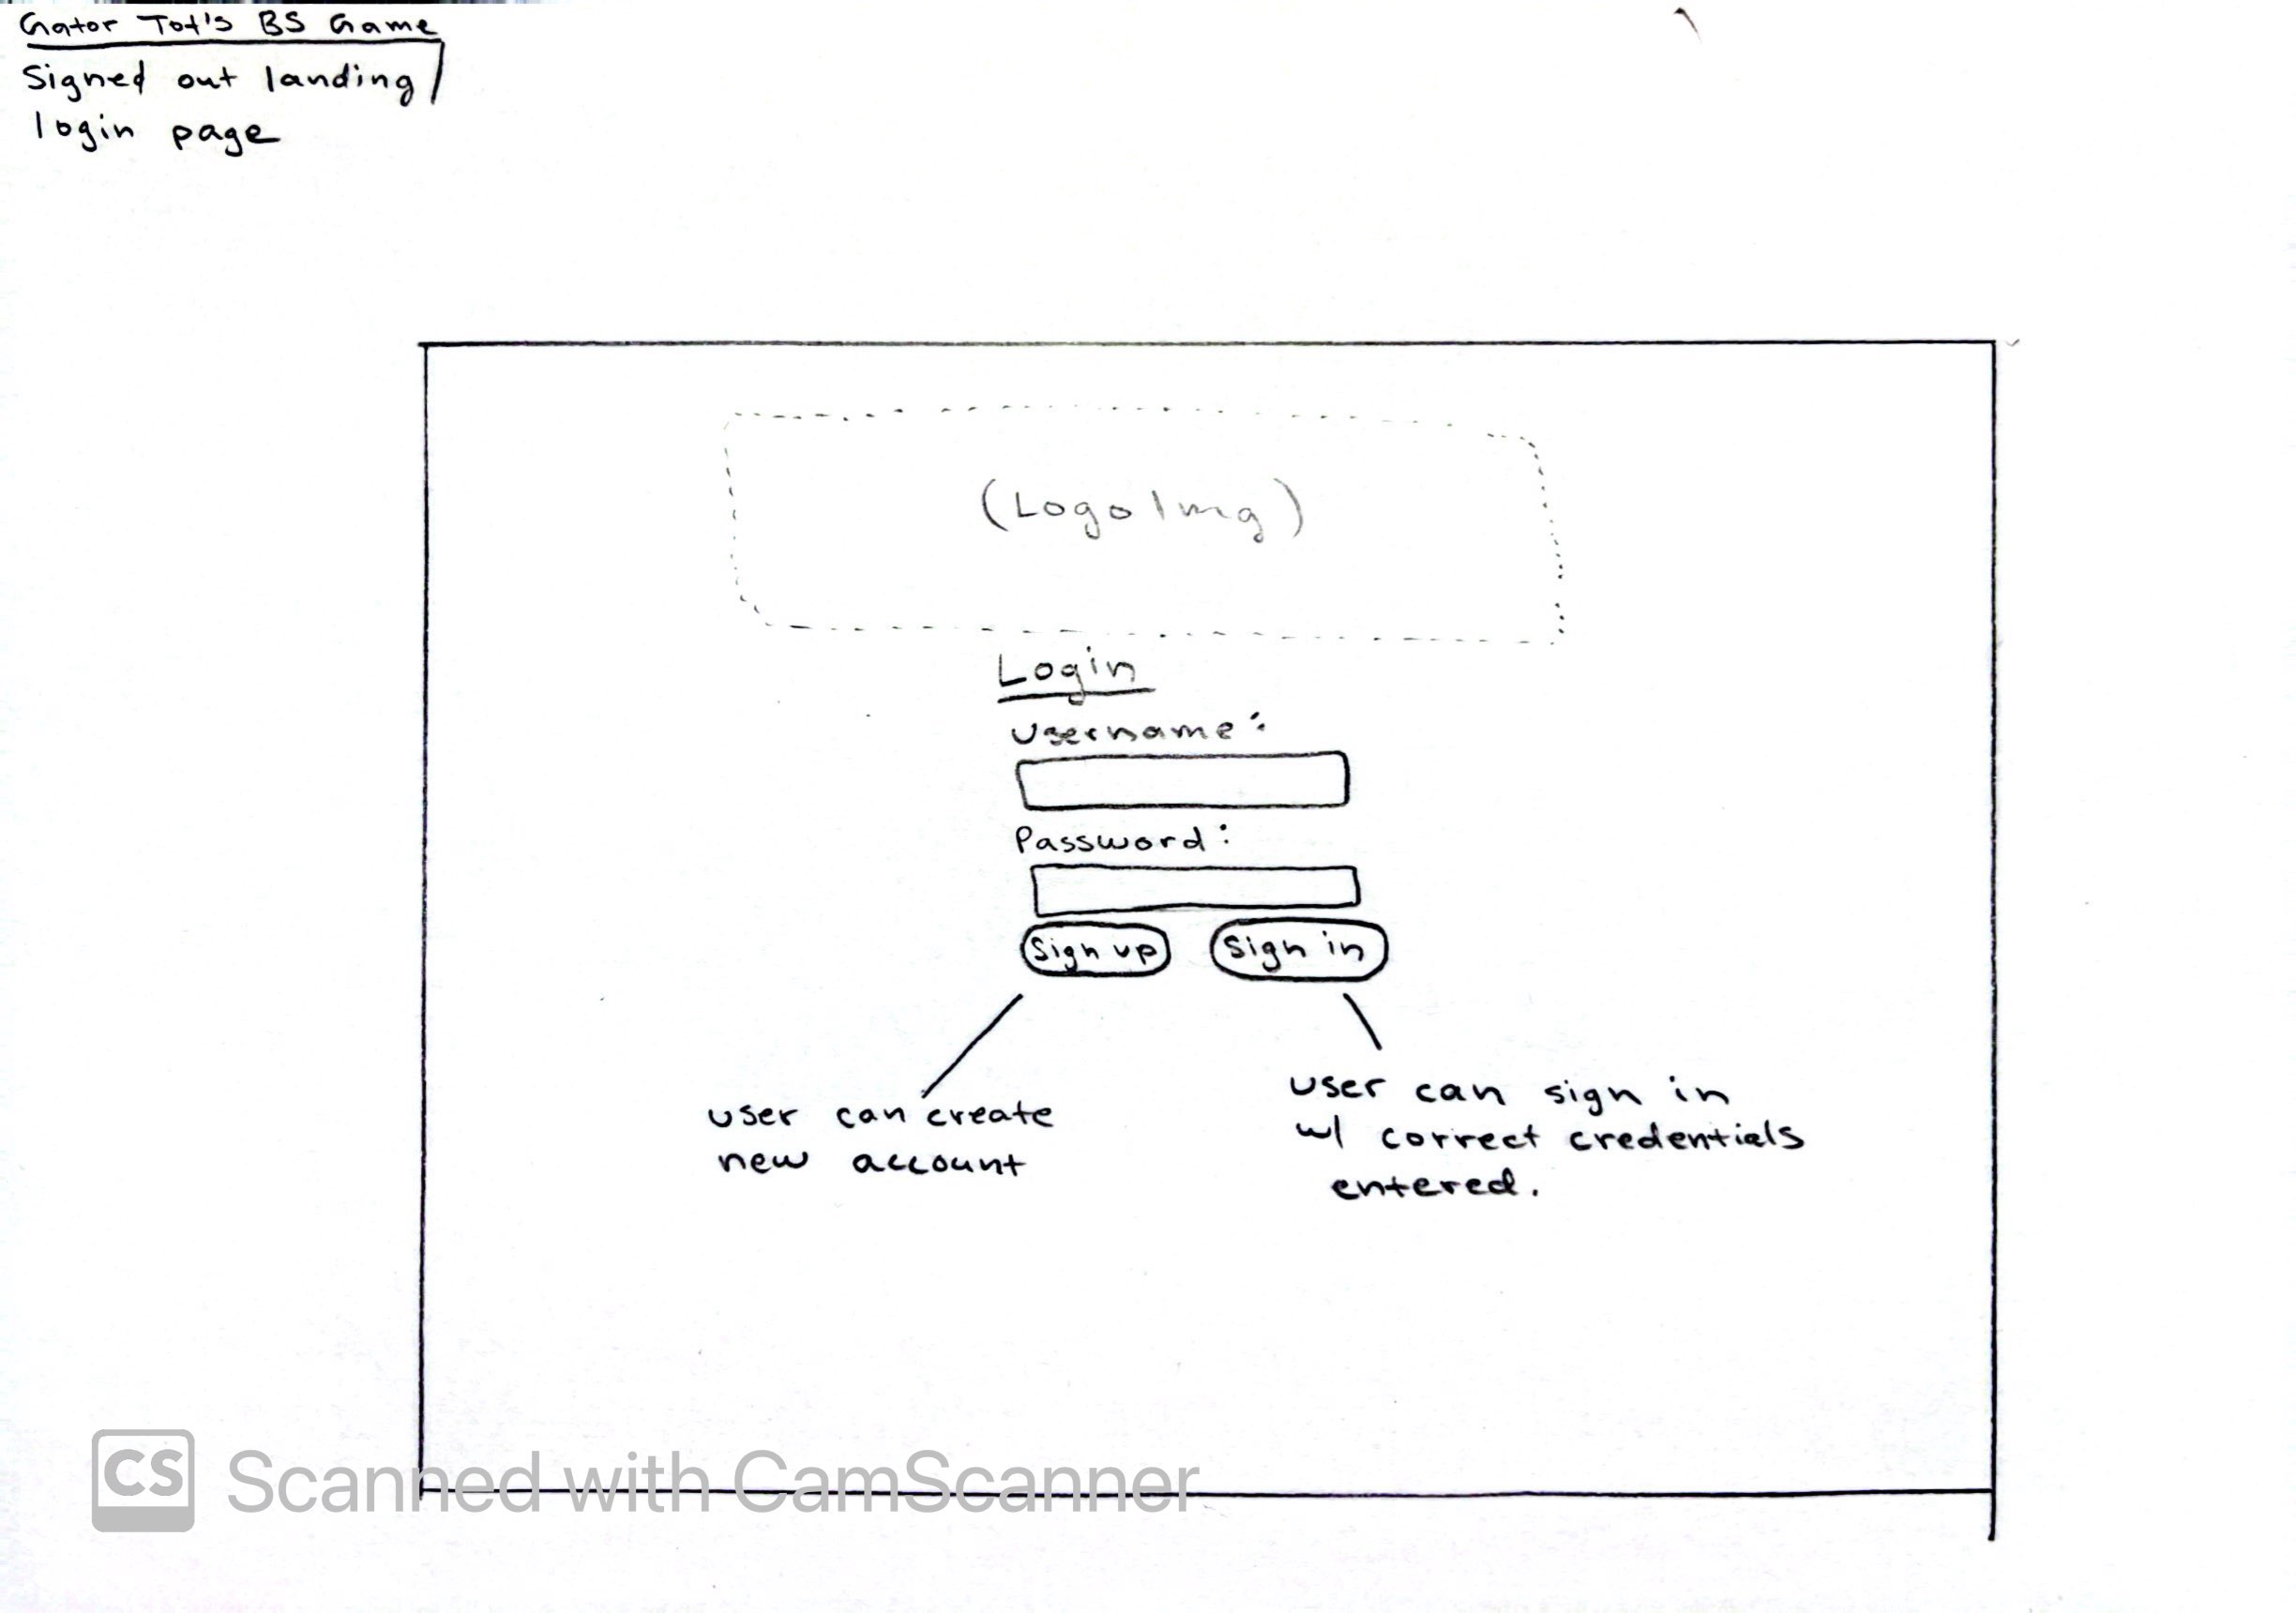 Gator Tot's BS Game
Signed out landing/
login page
(Logo Img)
Login
Username:
Password:
Sign up
Sign in
user can create
new account
user can sign in
w/ correct credentials
entered.
CS Scanned with CamScanner